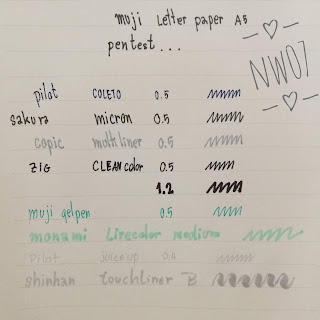 muji Letter paper A5
pentest...
NW07
pilot COLETO 0.5
sakura micron 0.5
copic multiliner 0.5
ZIG CLEAN color 0.5
1.2
muji gelpen 0.5
monami Livecolor medium
Pilot juice up 0.4
shinhan touchliner B